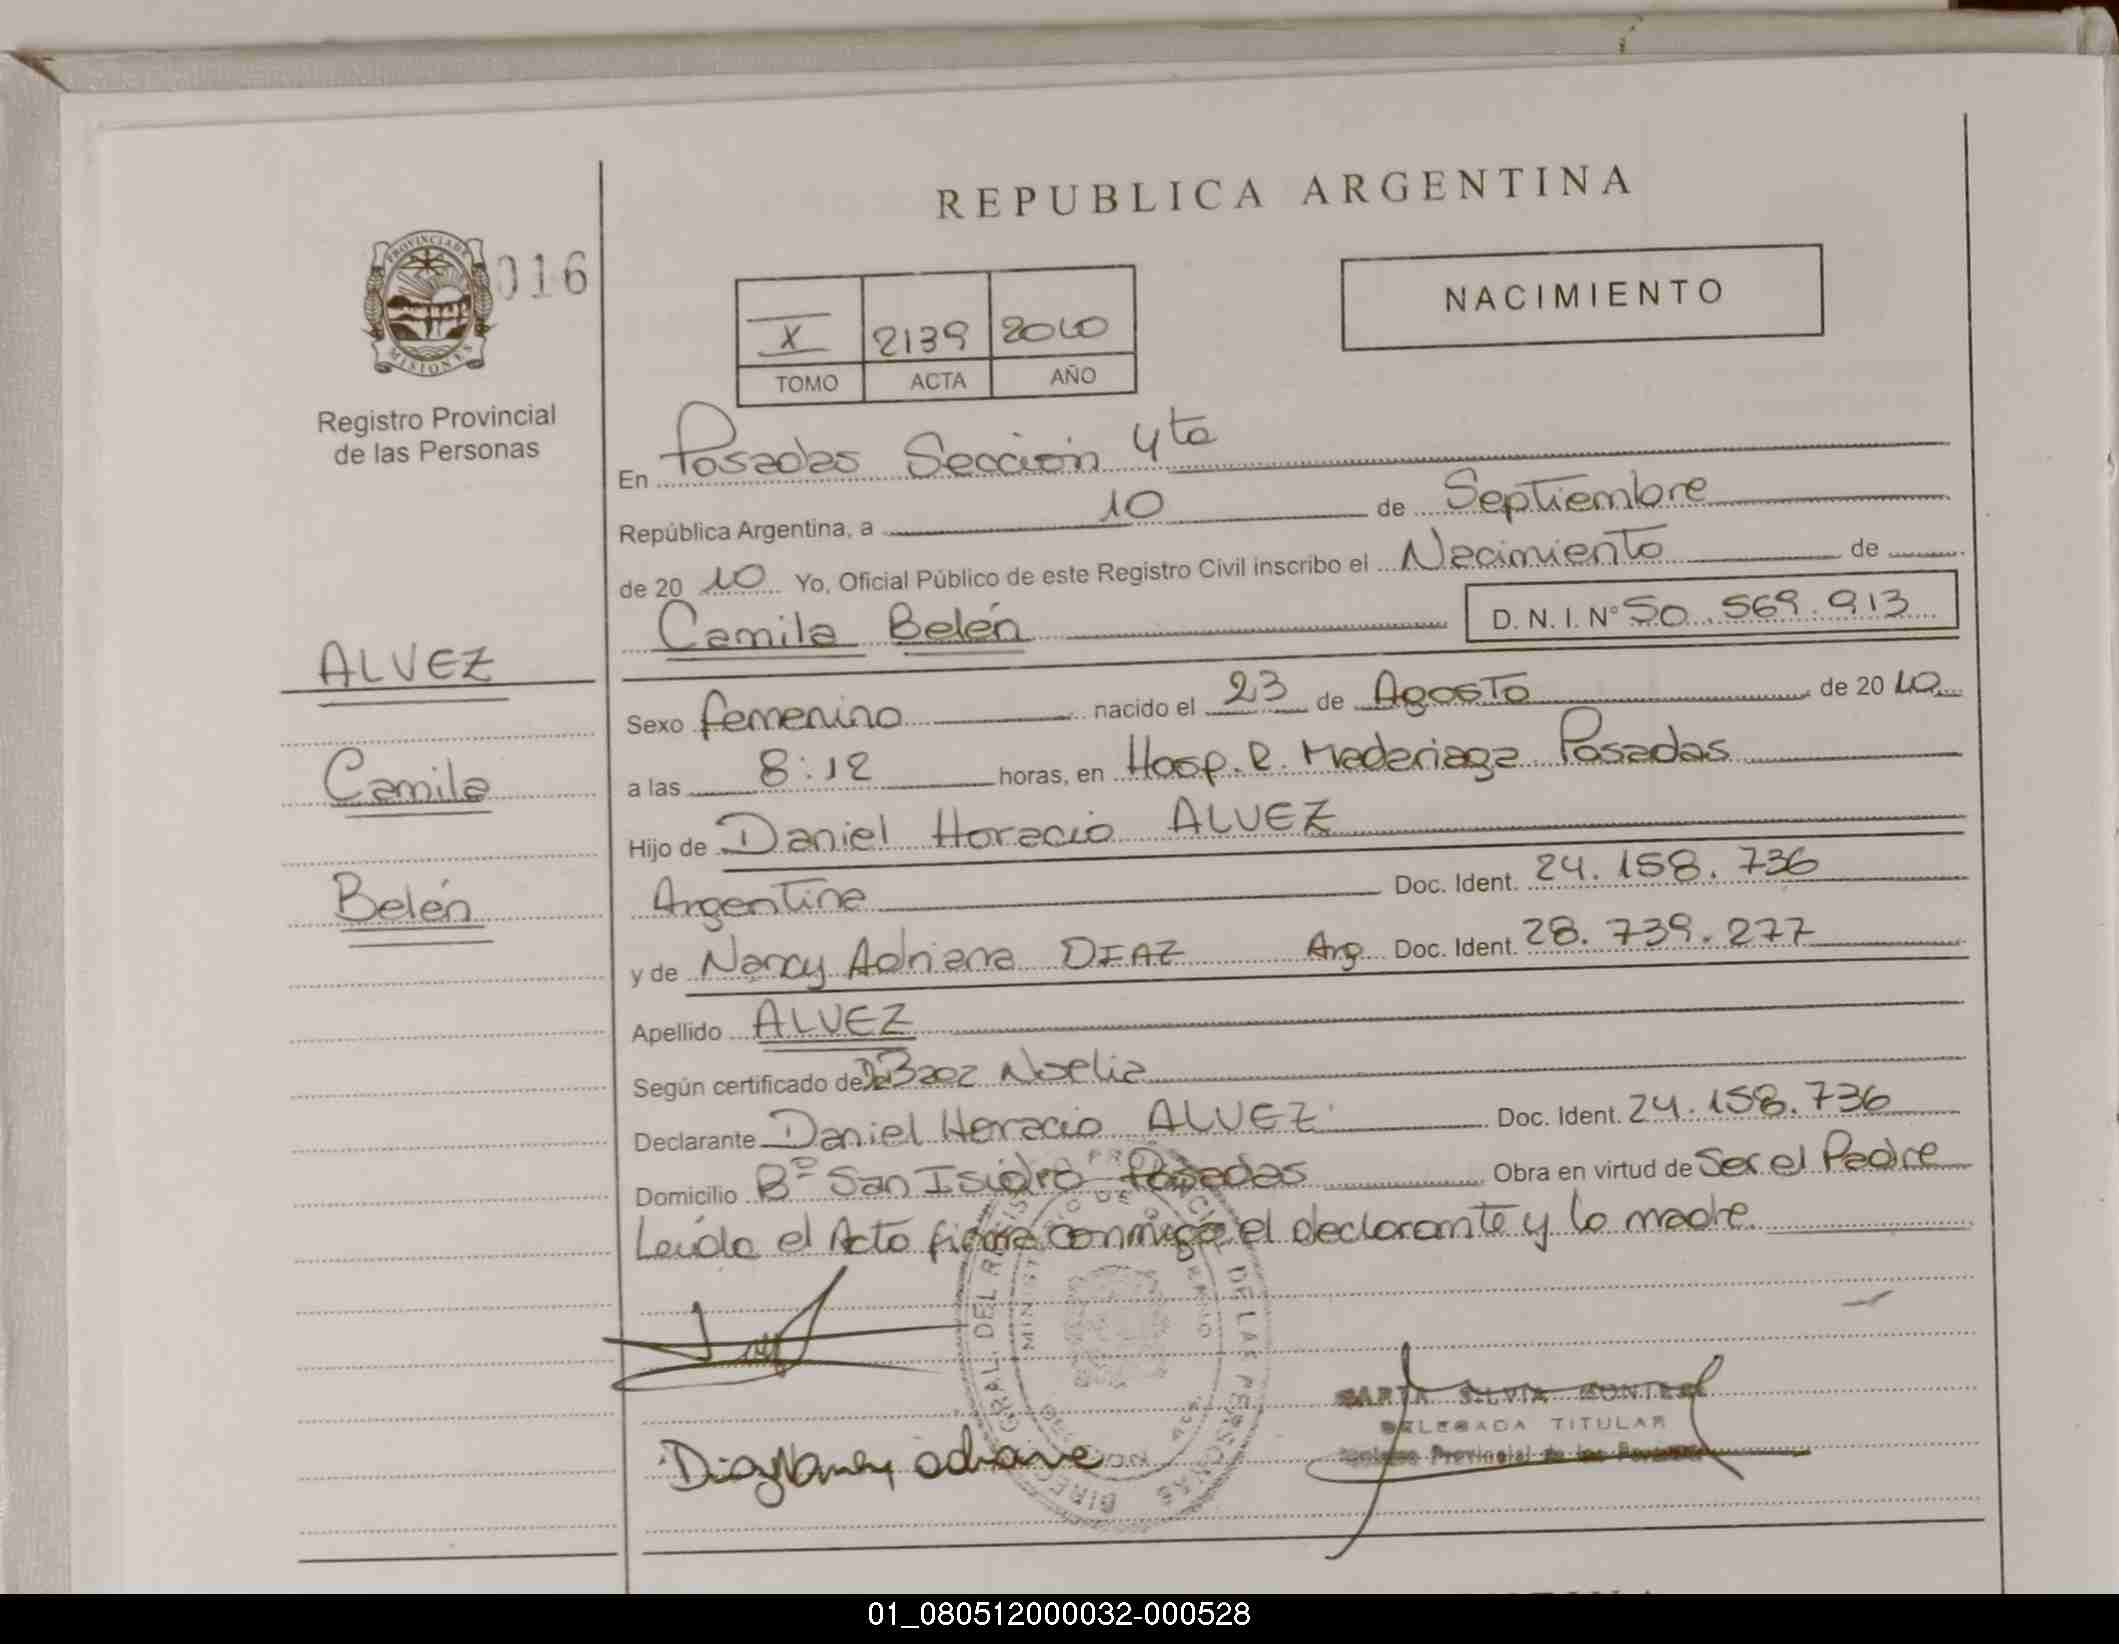 REPUBLICA ARGENTINA
016
PROVINCIA DE
MISIONES
NACIMIENTO
X 2139 2010
TOMO ACTA AÑO
Registro Provincial
de las Personas
En Posadas Sección 4ta
República Argentina, a 10 de Septiembre
de 20 10 Yo, Oficial Público de este Registro Civil inscribo el Nacimiento de
Camila Belén D. N. I. Nº 50.569.913
ALVEZ
Camila
Belén
Sexo femenino nacido el 23 de Agosto de 20 10
a las 8:12 horas, en Hosp. R. Maderiaga Posadas
Hijo de Daniel Horacio ALVEZ
Argentina Doc. Ident. 24.158.736
y de Nancy Adriana DIAZ Arg. Doc. Ident. 28.739.277
Apellido ALVEZ
Según certificado de Baez Noelia
Declarante Daniel Horacio ALVEZ Doc. Ident. 24.158.736
Domicilio Bº San Isidro Posadas Obra en virtud de Ser el Padre
Leída el Acta firma conmigo el declarante y la madre.
DE LAS PERSONAS
Diaz Nancy adriana
SILVIA
DELEGADA TITULAR
Provincial de las Personas
01_080512000032-000528